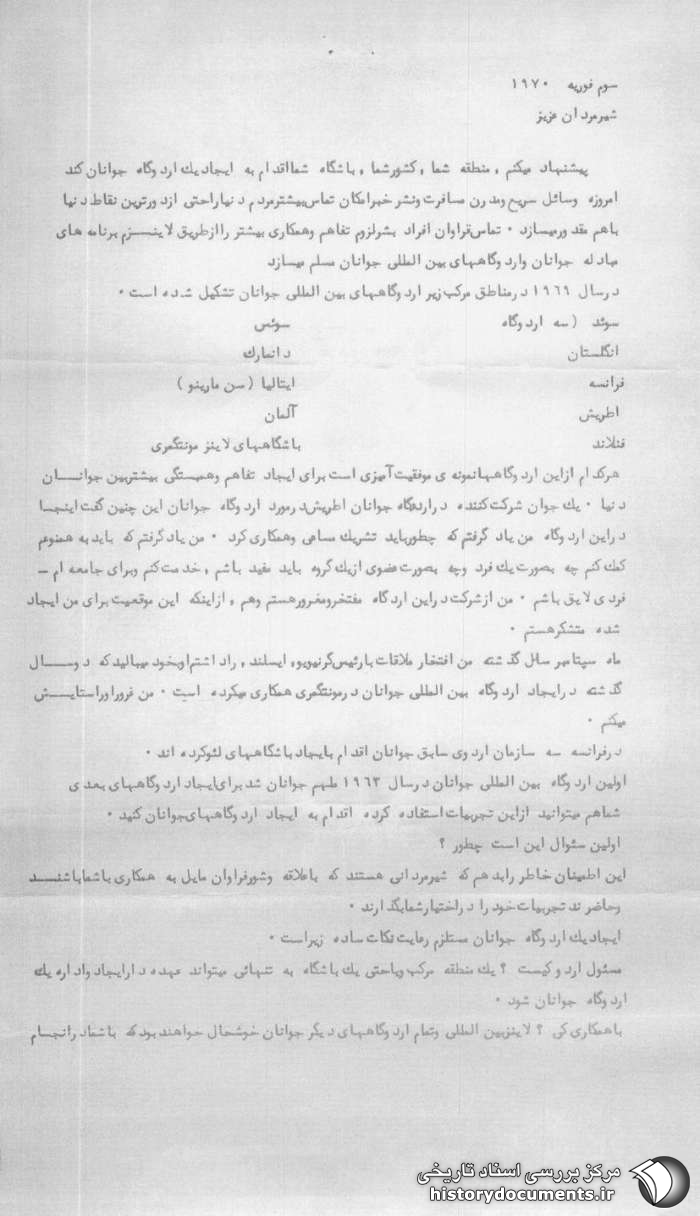 سوم فوریه ۱۹۷۰
شیرمردان عزیز
پیشنهاد میکنم ، منطقه شما ، کشورشما ، باشگاه شما اقدام به ایجاد یک اردوگاه جوانان کند
امروزه وسائل سریع ومدرن مسافرت ونشر خبرامکان تماس بیشترمردم دنیاراحتی ازدورترین نقاط دنیا
باهم مقدورمیسازد ۰ تماس فراوان افراد بشرلزوم تفاهم وهمکاری بیشتر راازطریق لاینسزم برنامه های
مبادله جوانان واردوگاههای بین المللی جوانان مسلم میسازد
درسال ۱۹۶۹ درمناطق مرکب زیر اردوگاههای بین المللی جوانان تشکیل شده است ۰
سوئد (سه اردوگاه سوئیس
انگلستان دانمارک
فرانسه ایتالیا (سن مارینو)
اطریش آلمان
فنلاند باشگاههای لاینز مونتگمری
هرکدام ازاین اردوگاههانمونه ی موفقیت آمیزی است برای ایجاد تفاهم وهمبستگی بیشتربین جوانان
دنیا ۰ یک جوان شرکت کننده دراردوگاه جوانان اطریش درمورد اردوگاه جوانان این چنین گفت اینجا
دراین اردوگاه من یاد گرفتم که چطورباید تشریک مساعی وهمکاری کرد ۰ من یاد گرفتم که باید به همنوعم
کمک کنم چه بصورت یک فرد وچه بصورت عضوی ازیک گروه باید مفید باشم ، خدمت کنم وبرای جامعه ام -
فردی لایق باشم ۰ من ازشرکت دراین اردوگاه مفتخرومغرورهستم وهم ، ازاینکه این موقعیت برای من ایجاد
شده متشکرهستم ۰
ماه سپتامبر سال گذشته من افتخار ملاقات بارئیس گرنیویو، ایسلند ، راداشتم اوبخود میبالید که دوسال
گذشته درایجاد اردوگاه بین المللی جوانان درمونتگمری همکاری میکرده است ۰ من غرور اوراستایش
میکنم ۰
درفرانسه سه سازمان اردوی سابق جوانان اقدام بایجاد باشگاههای لئوکرده اند ۰
اولین اردوگاه بین المللی جوانان درسال ۱۹۶۳ ملهم جوانان شد برای ایجاد اردوگاههای بعدی
شماهم میتوانید ازاین تجربیات استفاده کرده اقدام به ایجاد اردوگاههای جوانان کنید ۰
اولین سئوال این است چطور ؟
این اطمینان خاطر رابدهم که شیرمردانی هستند که باعلاقه وشورفراوان مایل به همکاری باشماباشند
وحاضرند تجربیات خود را دراختیارشمابگذارند ۰
ایجاد یک اردوگاه جوانان مستلزم رعایت نکات ساده زیراست ۰
مسئول اردو کیست ؟ یک منطقه مرکب ویاحتی یک باشگاه به تنهائی میتواند عهده دارایجاد واداره یک
اردوگاه جوانان شود ۰
باهمکاری کی ؟ لاینزبین المللی وتمام اردوگاههای دیگر جوانان خوشحال خواهند بود که باشمادرانجام
مرکز بررسی اسناد تاریخی
historydocuments.ir